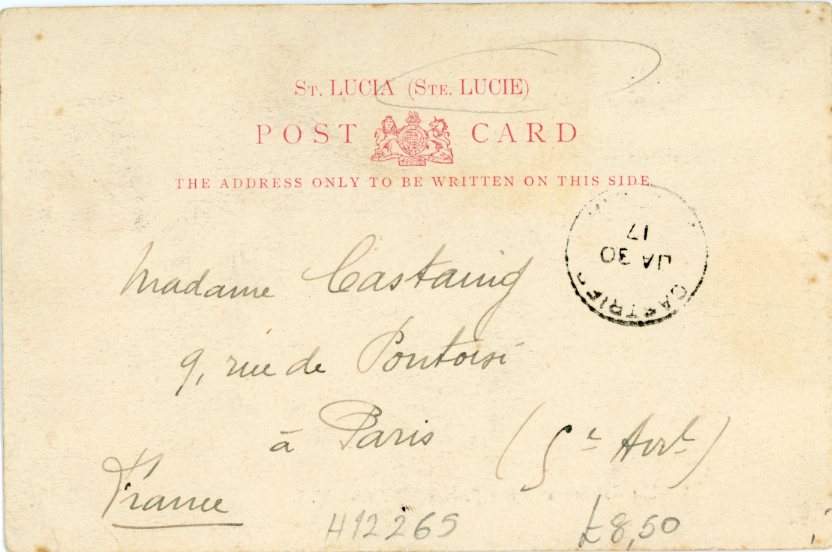 St. LUCIA (Ste. LUCIE)
POST CARD
THE ADDRESS ONLY TO BE WRITTEN ON THIS SIDE
CASTRIES
JA 30
17
Madame Castaing
9, rue de Pontoise
à Paris (5e Arrt)
France
H12265
£8,50